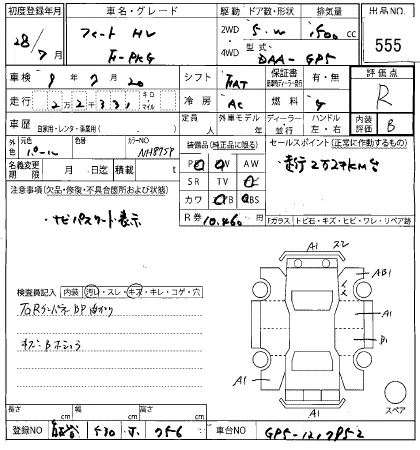 初度登録年月 車名・グレード 駆動 ドア数・形状 排気量 出品NO.
28/7月 フィット HV 2WD 5.W 1500 cc 555
F-PKG 4WD 型式 DAA-GP5
車検 9年7月20 シフト FAT 保証書 有・無 評価点
走行 2万2千331 キロ マイル 冷房 AC 燃料 R
車歴 自家用・レンタ・事業用( ) 定員 外車モデル/年 ディーラー・並行 ハンドル 左・右 内装評価 B
外色 元色 パール 色替 カラーNO NH875P 装備品(純正品に限る) セールスポイント(正常に作動するもの)
名義変更期限 月 日迄 積載量 t PS PW AW 走行2万2千km台
注意事項(欠品・修復・不具合箇所および状態) SR TV
ナビパスワード表示 カワ
R券 10,460 Fガラス トビ石・キズ・ヒビ・ワレ・リペア跡
A1 スレ
AB1
検査員記入 内装 汚れ・スレ・キズ・キレ・コゲ・穴
A1
B1
A1
A1
スペア
長さ cm 幅 cm 高さ cm
登録NO 530 756 車台NO GP5-1207952